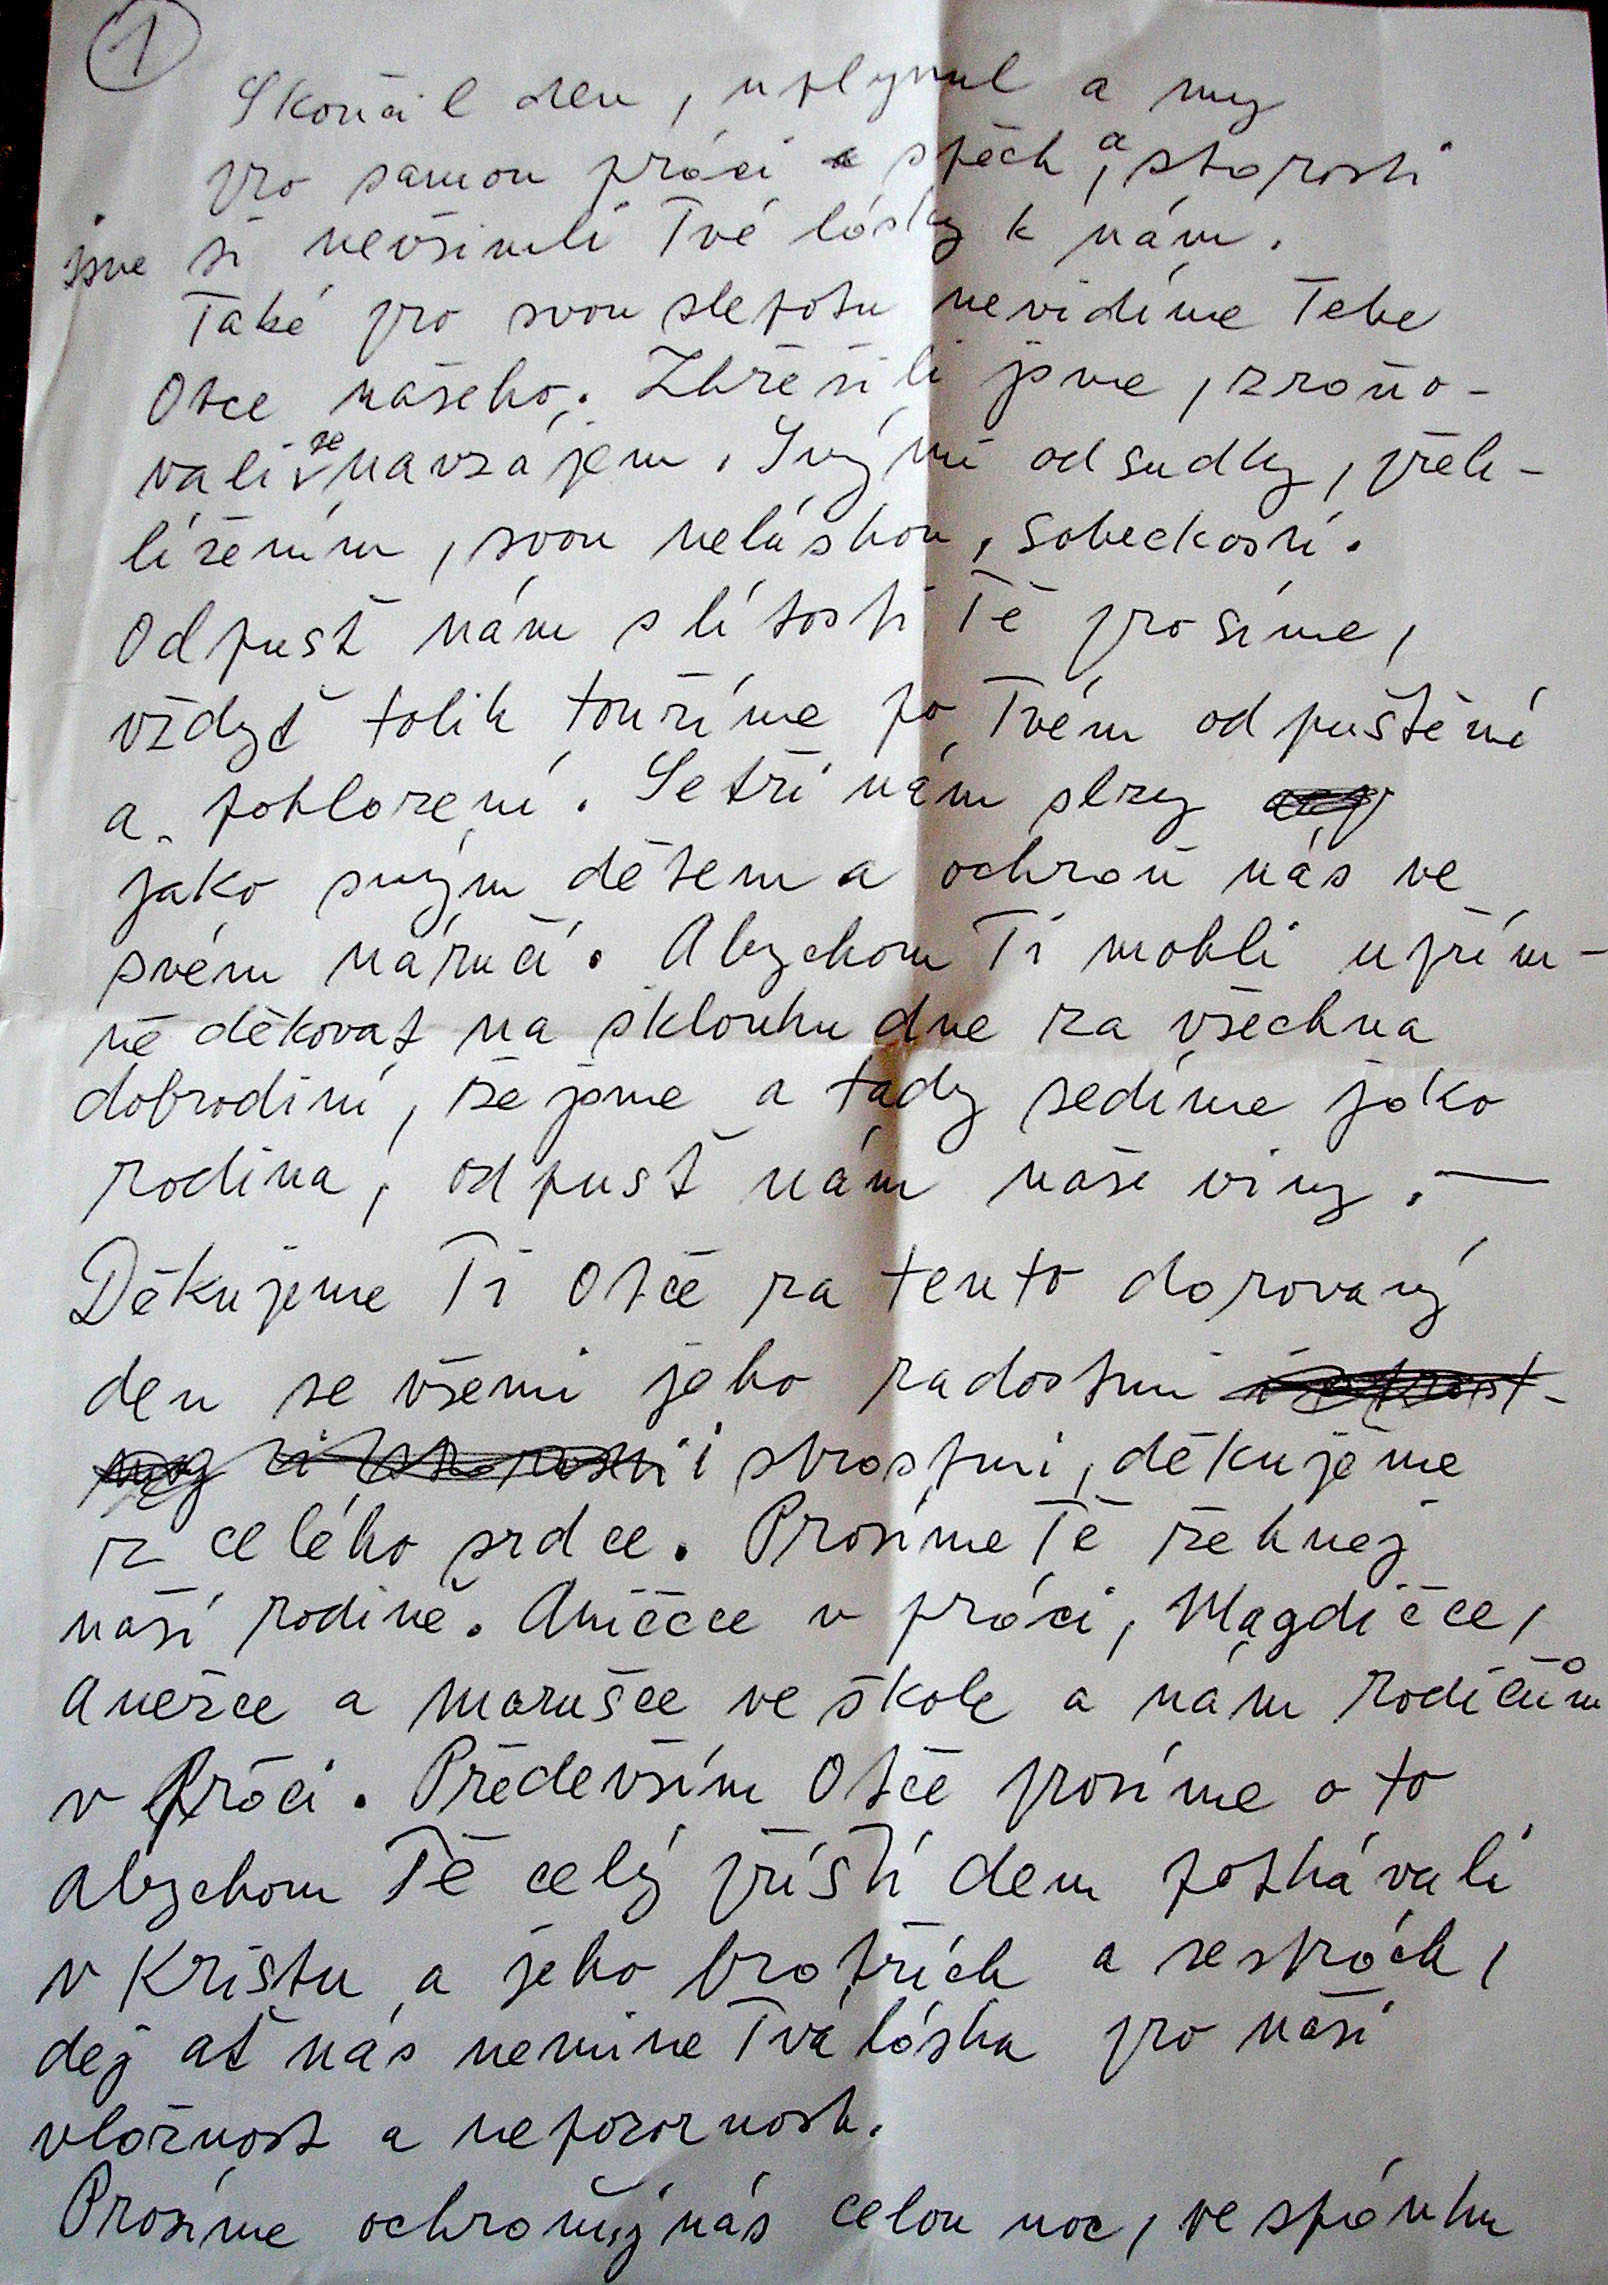 1
Skončil den, uplynul a my
pro samou práci spěch, a starosti
jsme si nevšimli Tvé lásky k nám.
Také pro svou slepotu nevidíme Tebe
Otce našeho. Zhřešili jsme, zraňo-
vali se navzájem. Svými odsudky, přeh-
lížením, svou neláskou, sobeckostí.
Odpusť nám s lítostí Tě prosíme,
vždyť tolik toužíme po Tvém odpuštění
a pohlazení. Setři nám slzy
jako svým dětem a ochraň nás ve
svém náručí. Abychom Ti mohli upřím-
ně děkovat na sklonku dne za všechna
dobrodiní, že jsme a tady sedíme jako
rodina, odpusť nám naše viny. —
Děkujeme Ti Otče za tento darovaný
den se všemi jeho radostmi
i strastmi, děkujeme
z celého srdce. Prosíme Tě žehnej
naší rodině. Aničce v práci, Magdičce,
Anežce a Marušce ve škole a nám rodičům
v práci. Především Otče prosíme o to
abychom Tě celý příští den potkávali
v Kristu a jeho bratřích a sestrách,
dej ať nás nemine Tvá láska pro naši
vlažnost a nepozornost.
Prosíme ochraňuj nás celou noc, ve spánku